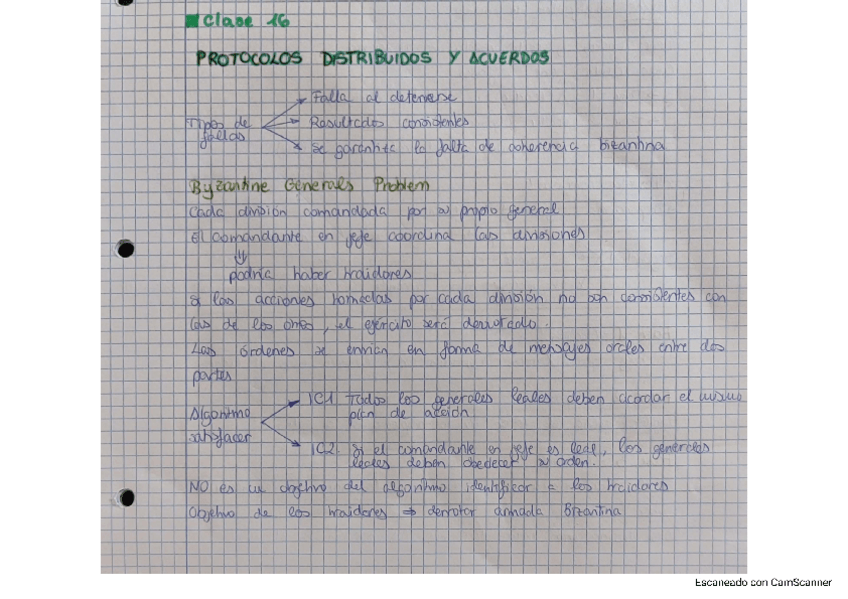 Clase 16
PROTOCOLOS DISTRIBUIDOS Y ACUERDOS
Falla al detenerse
Tipos de fallas
Resultados consistentes
Se garantiza la falta de coherencia bizantina
Byzantine Generals Problem
Cada división comandada por su propio general
El comandante en jefe coordina las divisiones
podría haber traidores
Si las acciones tomadas por cada división no son consistentes con
las de los otros, el ejército será derrotado.
Las órdenes se envían en forma de mensajes orales entre dos
partes
IC1 Todos los generales leales deben acordar el mismo
plan de acción
Algoritmo
satisfacer
IC2. Si el comandante en jefe es leal, los generales
leales deben obedecer su orden.
NO es un objetivo del algoritmo identificar a los traidores
Objetivo de los traidores ⇒ derrotar armada Bizantina
Escaneado con CamScanner